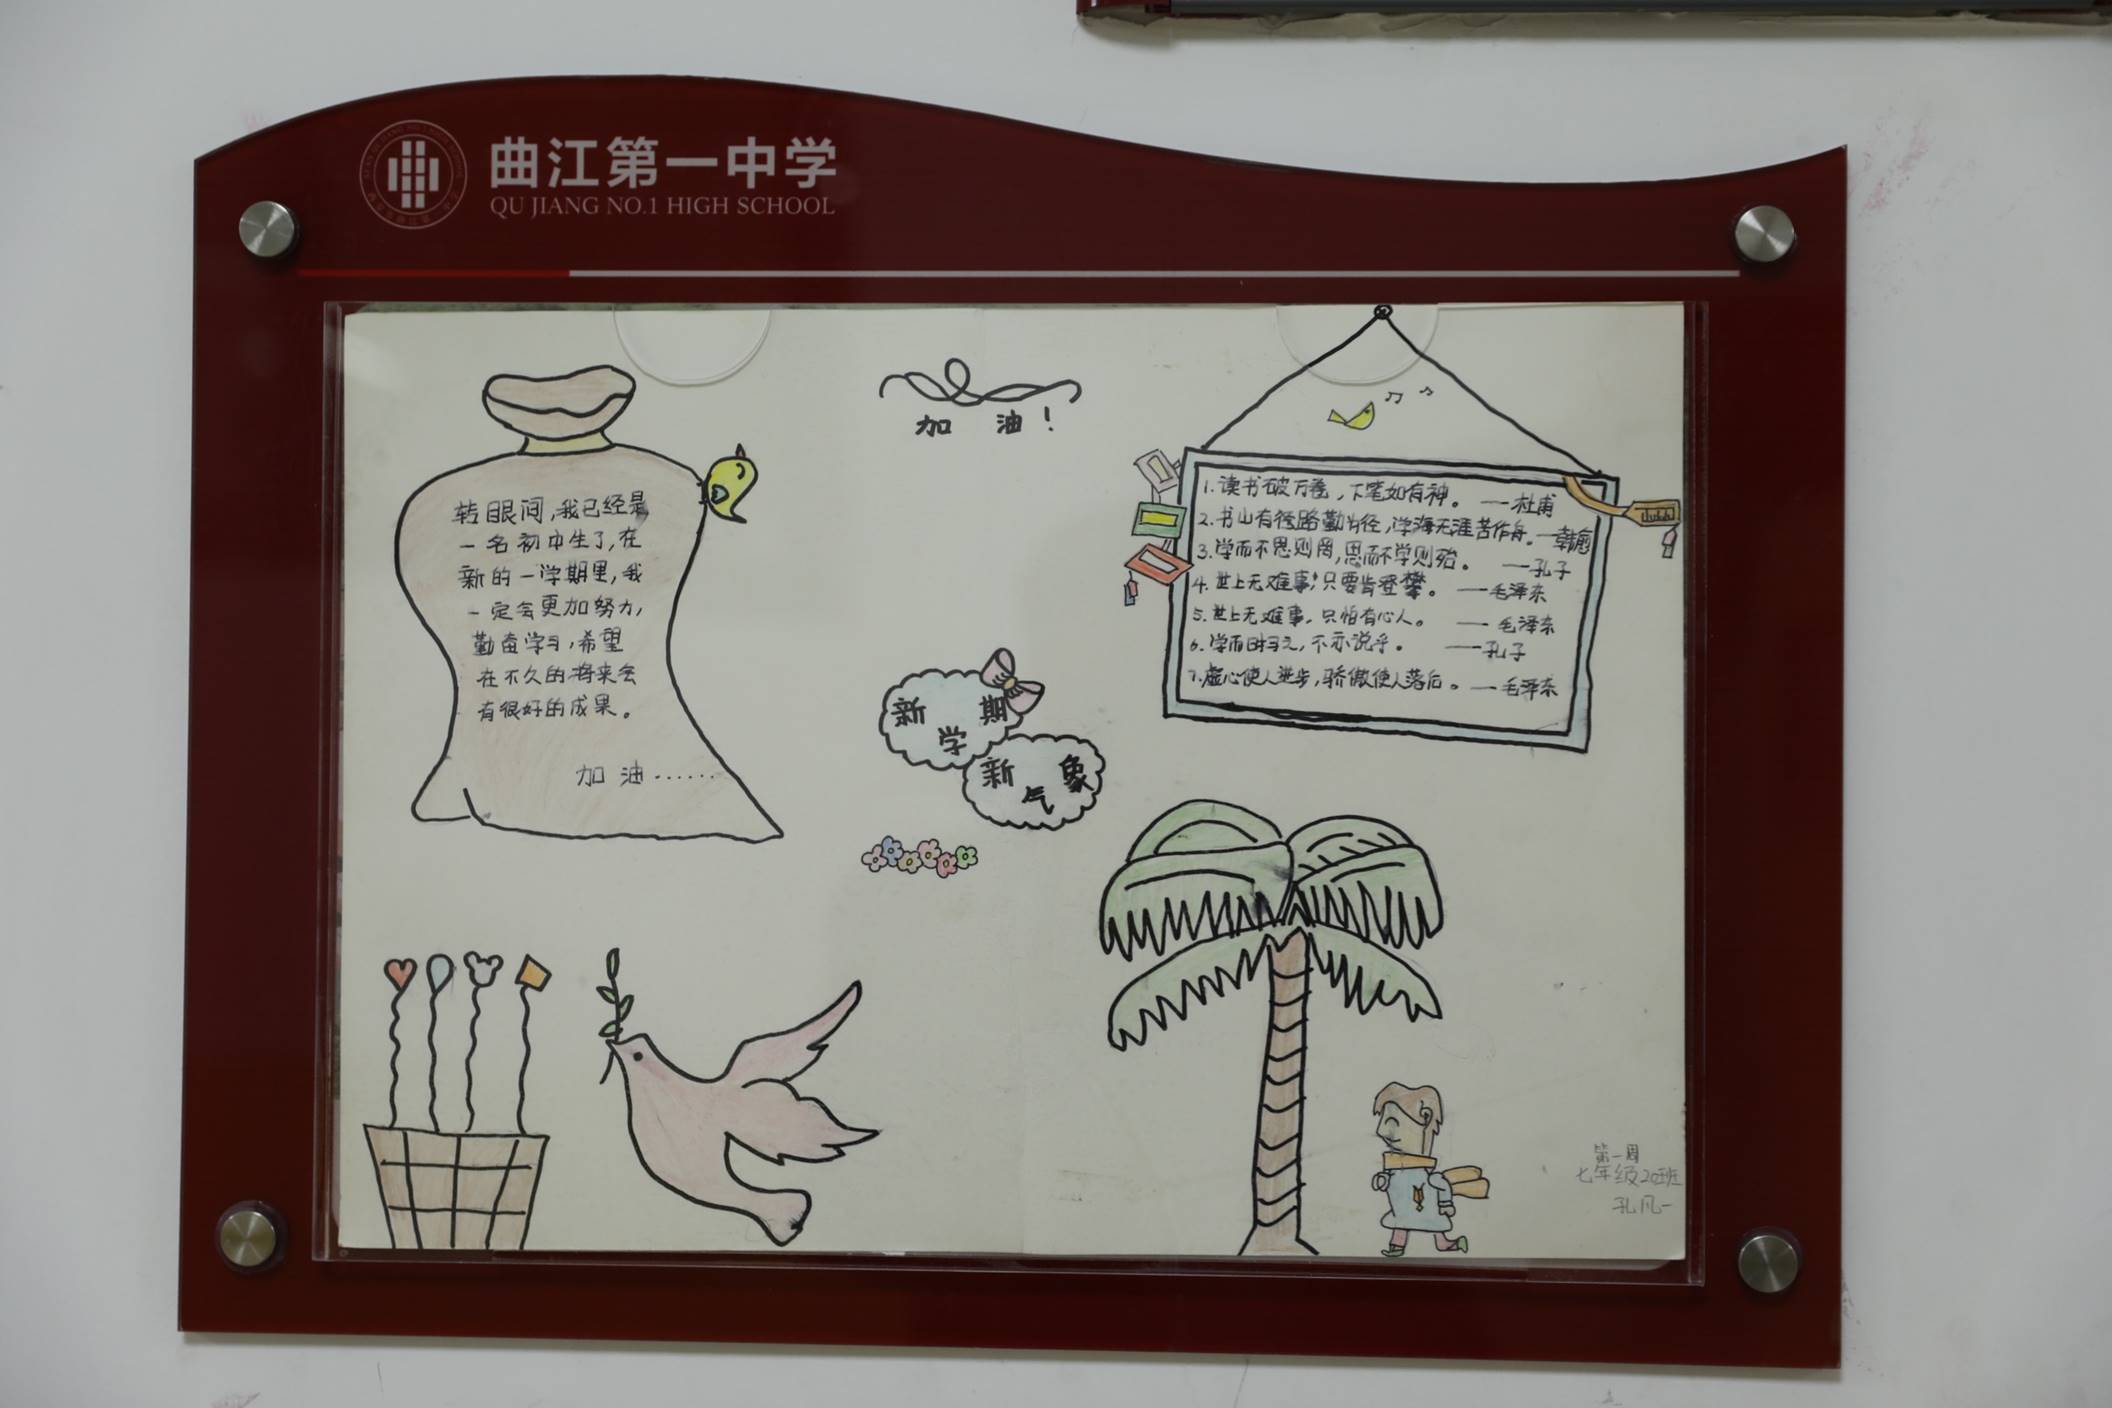 曲江第一中学
QU JIANG NO.1 HIGH SCHOOL
加 油！
转眼间，我已经是
一名初中生了，在
新的一学期里，我
一定会更加努力，
勤奋学习，希望
在不久的将来会
有很好的成果。
加 油······
1.读书破万卷，下笔如有神。——杜甫
2.书山有径路勤为径，学海无涯苦作舟。——韩愈
3.学而不思则罔，思而不学则殆。——孔子
4.世上无难事，只要肯登攀。——毛泽东
5.世上无难事，只怕有心人。——毛泽东
6.学而时习之，不亦说乎。——孔子
7.虚心使人进步，骄傲使人落后。——毛泽东
新学期
新气象
第一周
七年级20班
孔凡一